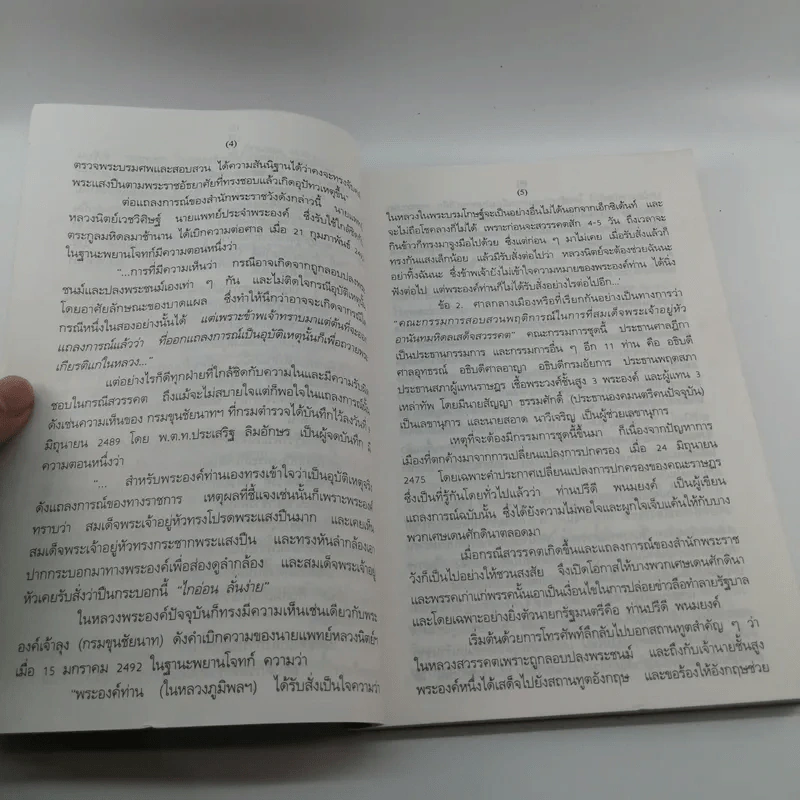 (4)
ตรวจพระบรมศพและสอบสวน ได้ความสันนิฐานได้ว่าคงจะทรงจับคลำ
พระแสงปืนตามพระราชอัธยาศัยที่ทรงชอบแล้วเกิดอุปัทวเหตุขึ้น"
ต่อแถลงการณ์ของสำนักพระราชวังดังกล่าวนี้ นายแพทย์
หลวงนิตย์เวชวิศิษฐ์ นายแพทย์ประจำพระองค์ ซึ่งรับใช้ใกล้ชิด
ตระกูลมหิดลมาช้านาน ได้เบิกความต่อศาล เมื่อ 21 กุมภาพันธ์
ในฐานะพยานโจทก์มีความตอนหนึ่งว่า
"...การที่มีความเห็นว่า กรณีอาจเกิดจากถูกลอบปลงพระ
ชนม์และปลงพระชนม์เองเท่า ๆ กัน และไม่ติดใจกรณีอุบัติเหตุ
โดยอาศัยลักษณะของบาดแผล ซึ่งทำให้นึกว่าอาจจะเกิดจาก
กรณีหนึ่งในสองอย่างนั้นได้ แต่เพราะข้าพเจ้าทราบมาแต่ต้นที่จะออก
แถลงการณ์แล้วว่า ที่ออกแถลงการณ์เป็นอุบัติเหตุนั้นก็เพื่อถวายพระ
เกียรติแก่ในหลวง..."
แต่อย่างไรก็ดีทุกฝ่ายที่ใกล้ชิดกับความในและมีความรับผิด
ชอบในกรณีสวรรคต ถึงแม้จะไม่สบายใจแต่ก็พอใจในแถลงการณ์นี้
ดังเช่นความเห็นของ กรมขุนชัยนาทฯ ที่กรมตำรวจได้บันทึกไว้ลงวันที่
มิถุนายน 2489 โดย พ.ต.ท.ประเสริฐ ลิมอักษร เป็นผู้จดบันทึก มี
ความตอนหนึ่งว่า
"... สำหรับพระองค์ท่านเองทรงเข้าใจว่าเป็นอุบัติเหตุจริง
ดังแถลงการณ์ของทางราชการ เหตุผลที่ชี้แจงเช่นนั้นก็เพราะพระองค์
ทราบว่า สมเด็จพระเจ้าอยู่หัวทรงโปรดพระแสงปืนมาก และเคยเห็น
สมเด็จพระเจ้าอยู่หัวทรงกระชากพระแสงปืน และทรงหันลำกล้องเอา
ปากกระบอกมาทางพระองค์เพื่อส่องดูลำกล้อง และสมเด็จพระเจ้าอยู่
หัวเคยรับสั่งว่าปืนกระบอกนี้ "ไกอ่อน ลั่นง่าย"
ในหลวงพระองค์ปัจจุบันก็ทรงมีความเห็นเช่นเดียวกับพระ
องค์เจ้าลุง (กรมขุนชัยนาท) ดังคำเบิกความของนายแพทย์หลวงนิตย์ฯ
เมื่อ 15 มกราคม 2492 ในฐานะพยานโจทก์ ความว่า
"พระองค์ท่าน (ในหลวงภูมิพลฯ) ได้รับสั่งเป็นใจความว่า
(5)
ในหลวงในพระบรมโกษฐ์จะเป็นอย่างอื่นไม่ได้นอกจากเอ็กซิเด้นท์ และ
จะไม่ถือโชคลางก็ไม่ได้ เพราะก่อนจะสวรรคตสัก 4-5 วัน ถึงเวลาจะ
กินข้าวก็ทรงมาจูงมือไปด้วย ซึ่งแต่ก่อน ๆ มาไม่เคย เมื่อรับสั่งแล้วก็
ทรงกันแสงเล็กน้อย แล้วมีรับสั่งต่อไปว่า หลวงนิตย์จะต้องช่วยฉันนะ
อย่าทิ้งฉันนะ ซึ่งข้าพเจ้ายังไม่เข้าใจความหมายของพระองค์ท่าน ได้นิ่ง
ฟังต่อไป แต่พระองค์ก็ไม่ได้รับสั่งอย่างไรต่อไปอีก..."
ข้อ 2. ศาลกลางเมืองหรือที่เรียกกันอย่างเป็นทางการว่า
"คณะกรรมการสอบสวนพฤติการณ์ในการที่สมเด็จพระเจ้าอยู่หัว
อานันทมหิดลเสด็จสวรรคต" คณะกรรมการชุดนี้ ประธานศาลฎีกา
เป็นประธานกรรมการ และกรรมการอื่น ๆ อีก 11 ท่าน คือ อธิบดี
ศาลอุทธรณ์ อธิบดีศาลอาญา อธิบดีกรมอัยการ ประธานพฤตสภา
ประธานสภาผู้แทนราษฎร เชื้อพระวงศ์ชั้นสูง 3 พระองค์ และผู้แทน 3
เหล่าทัพ โดยมีนายสัญญา ธรรมศักดิ์ (ประธานองคมนตรีคนปัจจุบัน)
เป็นเลขานุการ และนายสอาด นาวีเจริญ เป็นผู้ช่วยเลขานุการ
เหตุที่จะต้องมีกรรมการชุดนี้ขึ้นมา ก็เนื่องจากปัญหาการ
เมืองที่ตกค้างมาจากการเปลี่ยนแปลงการปกครอง เมื่อ 24 มิถุนายน
2475 โดยเฉพาะคำประกาศเปลี่ยนแปลงการปกครองของคณะราษฎร
ซึ่งเป็นที่รู้กันโดยทั่วไปแล้วว่า ท่านปรีดี พนมยงค์ เป็นผู้เขียน
แถลงการณ์ฉบับนั้น ซึ่งได้ยังความไม่พอใจและผูกใจเจ็บแค้นให้กับบาง
พวกเศษเดนศักดินาตลอดมา
เมื่อกรณีสวรรคตเกิดขึ้นและแถลงการณ์ของสำนักพระราช
วังก็เป็นไปอย่างให้ชวนสงสัย จึงเปิดโอกาสให้บางพวกเศษเดนศักดินา
และพรรคเก่าแก่พรรคนั้นเอาเป็นเงื่อนไขในการปล่อยข่าวลือทำลายรัฐบาล
และโดยเฉพาะอย่างยิ่งตัวนายกรัฐมนตรีคือ ท่านปรีดี พนมยงค์
เริ่มต้นด้วยการโทรศัพท์ลึกลับไปบอกสถานทูตสำคัญ ๆ ว่า
ในหลวงสวรรคตเพราะถูกลอบปลงพระชนม์ และถึงกับเจ้านายชั้นสูง
พระองค์หนึ่งได้เสด็จไปยังสถานทูตอังกฤษ และขอร้องให้อังกฤษช่วย